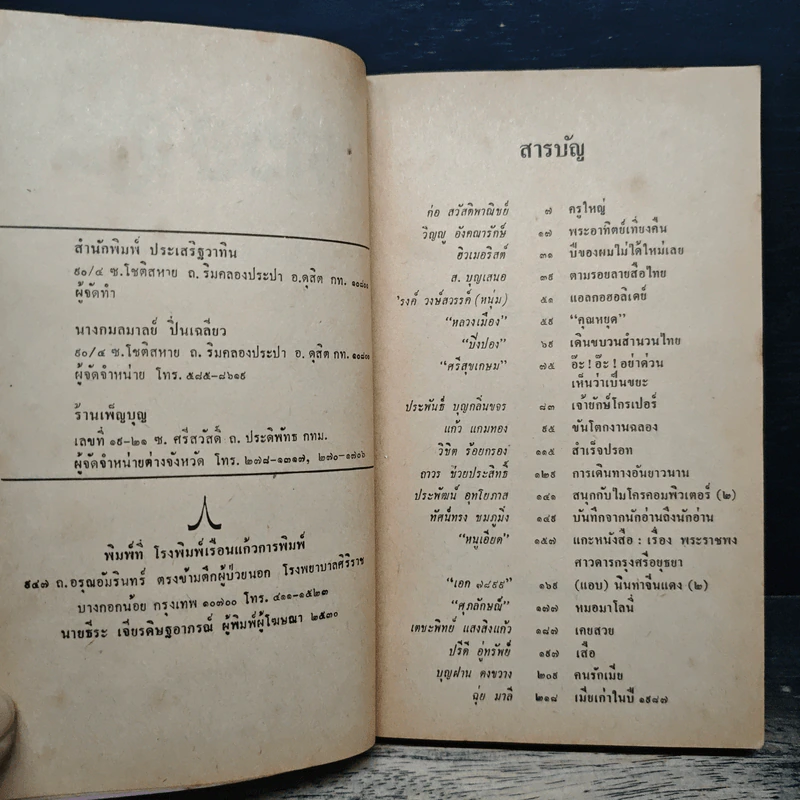 สำนักพิมพ์ ประเสริฐวาทิน
๙๐/๔ ซ.โชติสหาย ถ.ริมคลองประปา อ.ดุสิต กท. ๑๐๘๐๐
ผู้จัดทำ
นางกมลมาลย์ ปิ่นเฉลียว
๙๐/๔ ซ.โชติสหาย ถ. ริมคลองประปา อ. ดุสิต กท. ๑๐๘๐๐
ผู้จัดจำหน่าย โทร. ๕๘๕-๘๖๑๙
ร้านเพ็ญบุญ
เลขที่ ๑๙-๒๑ ซ. ศรีสวัสดิ์ ถ. ประดิพัทธ กทม.
ผู้จัดจำหน่ายต่างจังหวัด โทร. ๒๗๘-๑๓๑๗, ๒๗๐-๑๗๐๖
พิมพ์ที่ โรงพิมพ์เรือนแก้วการพิมพ์
๙๔๗ ถ.อรุณอัมรินทร์ ตรงข้ามตึกผู้ป่วยนอก โรงพยาบาลศิริราช
บางกอกน้อย กรุงเทพ ๑๐๗๐๐ โทร. ๔๑๑-๑๕๒๓
นายธีระ เจียรดิษฐอาภรณ์ ผู้พิมพ์ผู้โฆษณา ๒๕๓๐
สารบัญ
ก่อ สวัสดิพาณิชย์ ๗ ครูใหญ่
วิญญู อังคณารักษ์ ๑๗ พระอาทิตย์เที่ยงคืน
ฮิวเมอริสต์ ๓๑ ปีของผมไม่ได้ใหม่เลย
ส. บุญเสนอ ๓๙ ตามรอยลายสือไทย
'รงค์ วงษ์สวรรค์ (หนุ่ม) ๕๑ แอลกอฮอลิเดย์
"หลวงเมือง" ๕๙ "คุณหยุด"
"ปิ่งปอง" ๖๙ เดินขบวนสำนวนไทย
"ศรีสุขเกษม" ๗๕ อ๊ะ! อ๊ะ! อย่าด่วน
เห็นว่าเป็นขยะ
ประพันธ์ บุญกลิ่นขจร ๘๓ เจ้ายักษ์โกรเปอร์
แก้ว แกมทอง ๙๕ ขันโตกงานฉลอง
วิชิต ร้อยกรอง ๑๑๕ สำเร็จปรอท
ถาวร ช่วยประสิทธิ์ ๑๒๙ การเดินทางอันยาวนาน
ประพัฒน์ อุทโยภาส ๑๔๑ สนุกกับไมโครคอมพิวเตอร์ (๒)
ทัศน์ทรง ชมภูมิ่ง ๑๔๙ บันทึกจากนักอ่านถึงนักอ่าน
"หนูเอียด" ๑๕๗ แกะหนังสือ : เรื่อง พระราชพง
ศาวดารกรุงศรีอยุธยา
"เอก ๗๘๙๙" ๑๖๙ (แอบ) นินทาจีนแดง (๒)
"ศุภลักษณ์" ๑๗๗ หมอมาโลนี่
เตชะพิทย์ แสงสิงแก้ว ๑๘๗ เคยสวย
ปรีดี อู่ทรัพย์ ๑๙๗ เสือ
บุญฝาน คงขวาง ๒๐๙ คนรักเมีย
ฉุ่ย มาลี ๒๑๘ เมียเก่าในปี ๑๙๘๗